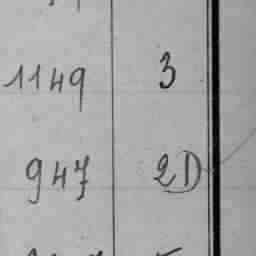 1149 3
947 2D